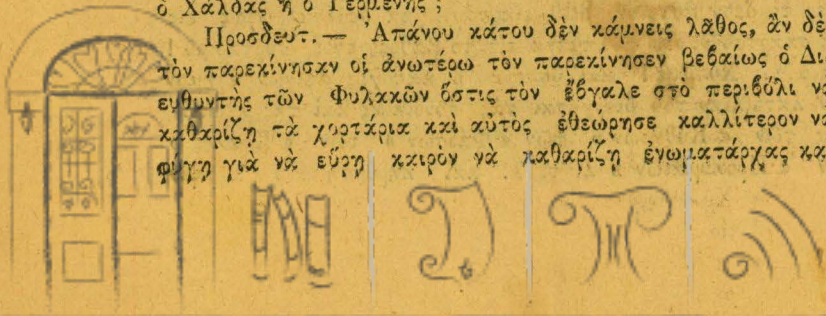 ὁ Χαλδᾶς ἢ ὁ Γερμενῆς ;
Προσδευτ.— Ἀπάνου κάτου δὲν κάμνεις λᾶθος, ἂν δὲ
τὸν παρεκίνησαν οἱ ἀνωτέρω τὸν παρεκίνησεν βεβαίως ὁ Δι
ευθυντὴς τῶν Φυλακῶν ὅστις τὸν ἔβγαλε στὸ περιβόλι ν
καθαρίζῃ τὰ χορτάρια καὶ αὐτὸς ἐθεώρησε καλλίτερον ν
φύγῃ γιὰ νὰ εὕρῃ καιρὸν νὰ καθαρίζῃ ἐνωματάρχας κα